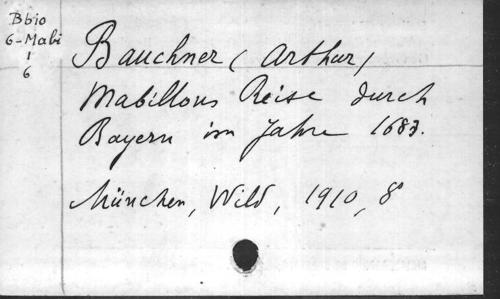 Bbio
6-Mabi
1
6
Bauchner (Arthur)
Mabillons Reise durch
Bayern im Jahre 1683.
München, Wild, 1910, 8°